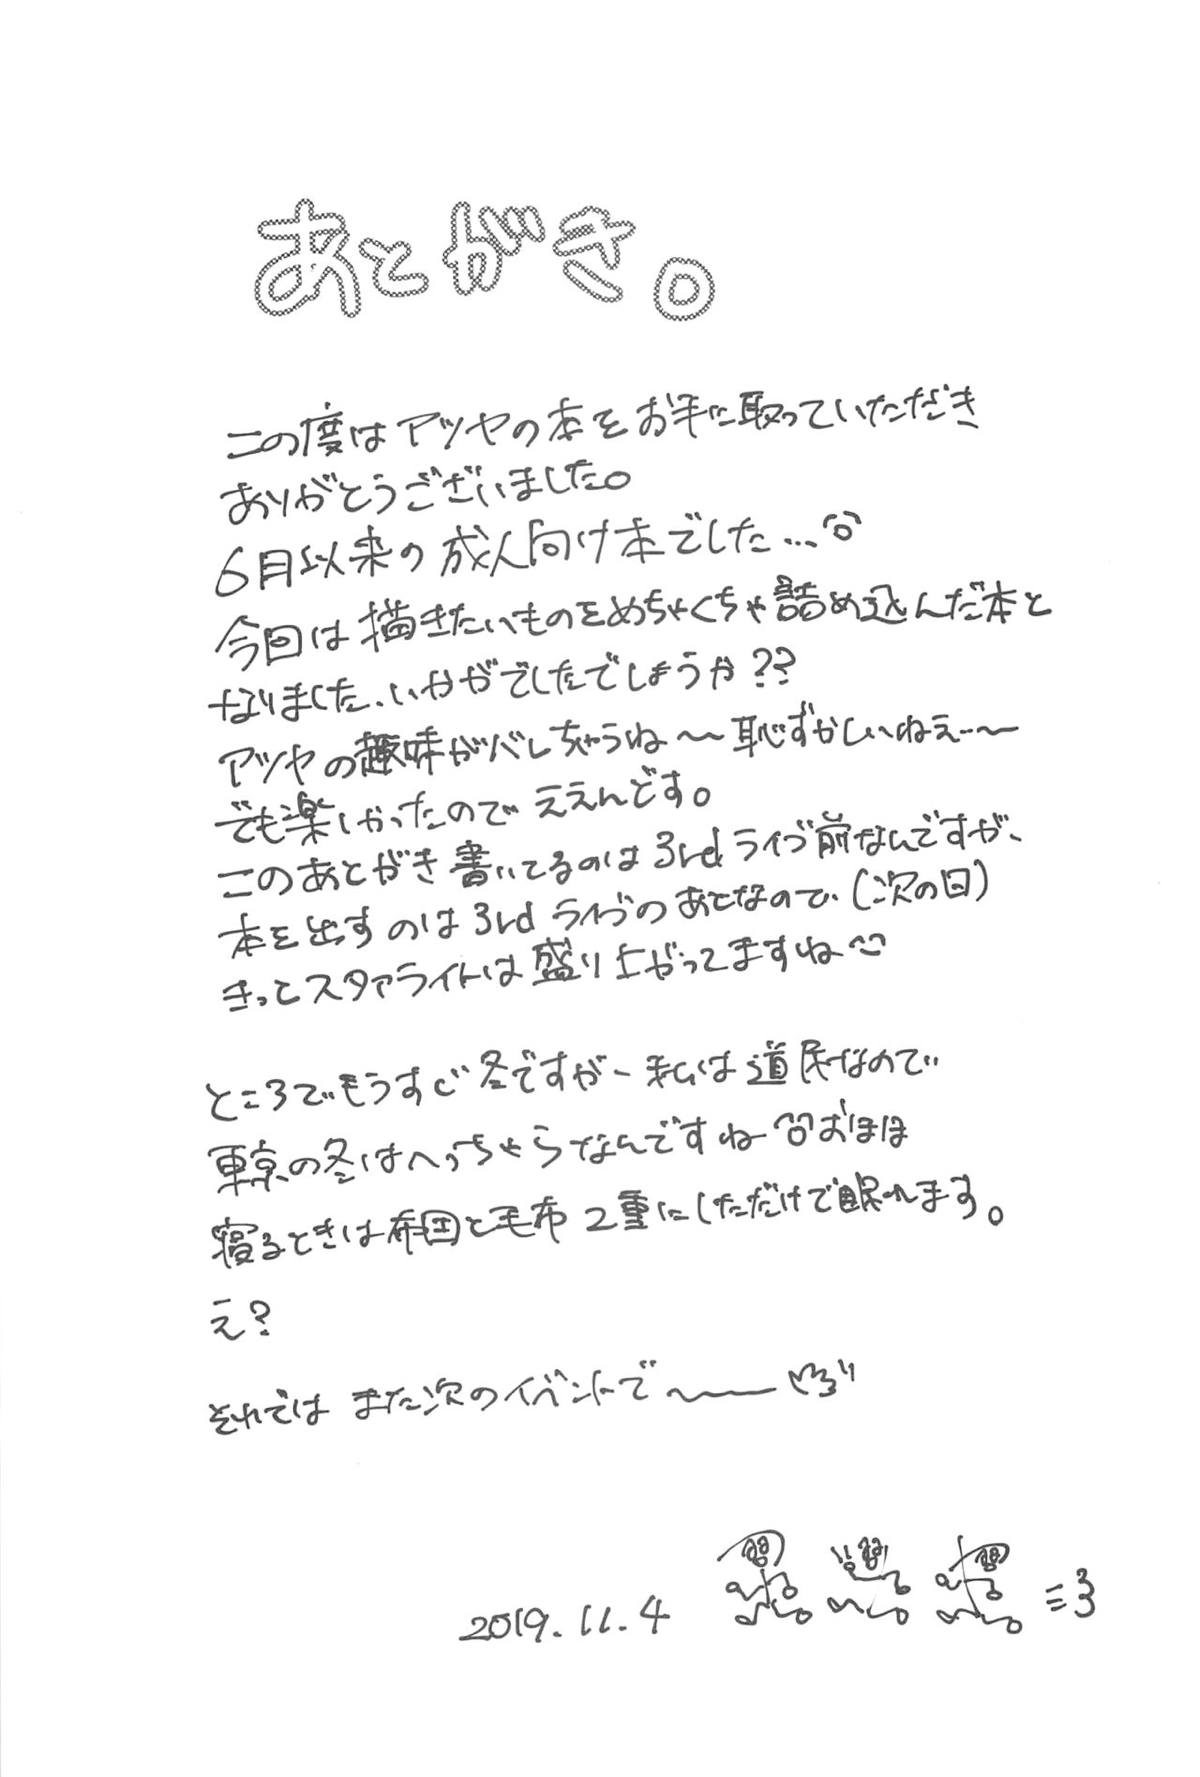 あとがき。
この度はアツヤの本をお手に取っていただき
ありがとうございました。
6月以来の成人向け本でした…
今回は描きたいものをめちゃくちゃ詰め込んだ本と
なりました、いかがでしたでしょうか??
アツヤの趣味がバレちゃうね〜恥ずかしいねえ〜
でも楽しかったのでええんです。
このあとがき書いてるのは3rdライブ前なんですが、
本を出すのは3rdライブのあとなので、(次の日)
きっとスタァライトは盛り上がってますね
ところでもうすぐ冬ですが、私は道民なので
東京の冬はへっちゃらなんですねーおほほ
寝るときは布団と毛布2重にしただけで眠れます。
え?
それでは また次のイベントで〜
2019.11.4